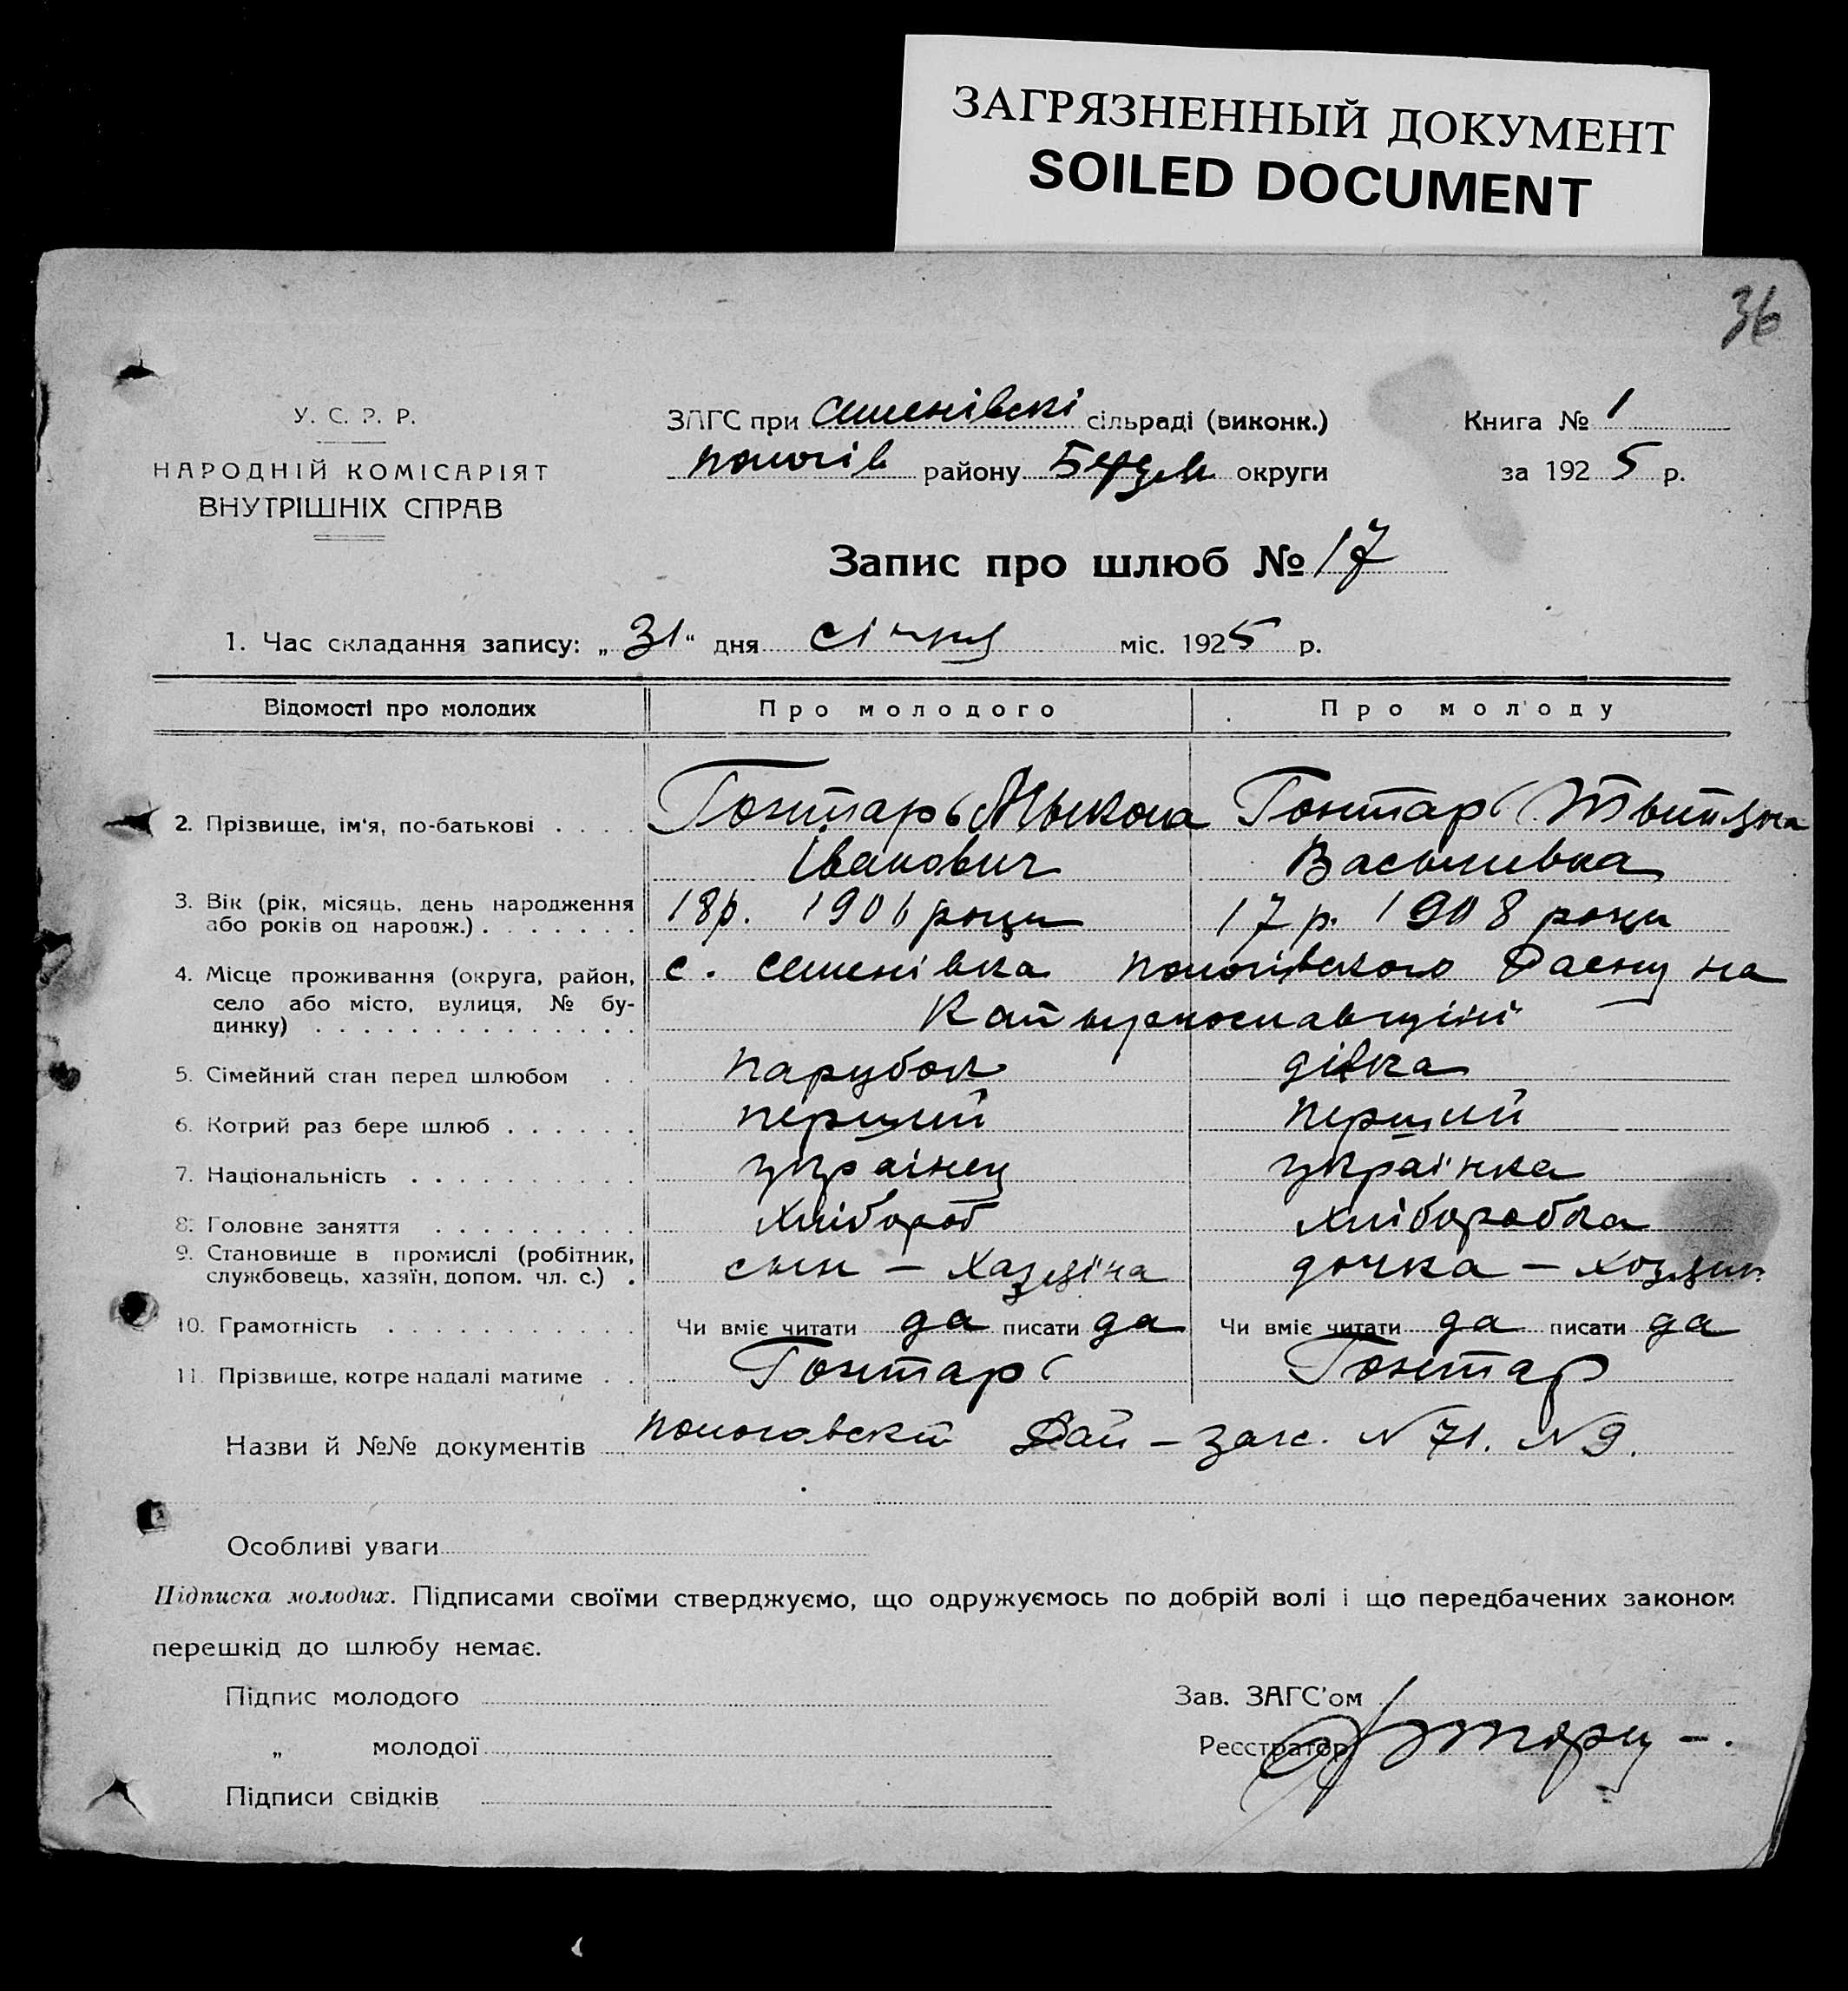 ЗАГРЯЗНЕННЫЙ ДОКУМЕНТ
SOILED DOCUMENT
36
У. С. Р. Р.
НАРОДНІЙ КОМІСАРІЯТ
ВНУТРІШНІХ СПРАВ
ЗАГС при Семенівскі сільраді (виконк.)
Пологів району Бердян округи
Книга № 1
за 1925 р.
Запис про шлюб № 17
1. Час складання запису: „31“ дня січня міс. 1925 р.
Відомості про молодих Про молодого Про молоду
2. Прізвище, ім'я, по-батькові . . . . Гонтарь Мыкола Гонтарь
Іванович Васылівка
3. Вік (рік, місяць, день народження 18р. 1906 року 17 р. 1908 року
або років од народж.) . . . . . . .
4. Місце проживання (округа, район, с. Семенівка Пологівского Раену на
село або місто, вулиця, № бу-
динку) . . . . . . . . . . . . . . Катырнославщіні
5. Сімейний стан перед шлюбом . . парубок дівка
6. Котрий раз бере шлюб . . . . . . перший перший
7. Національність . . . . . . . . . . українец українка
8. Головне заняття . . . . . . . . . хлібороб хліборобка
9. Становище в промислі (робітник, сын – хазяіна дочка – хозяин
службовець, хазяїн, допом. чл. с.) .
10. Грамотність . . . . . . . . . . . Чи вміє читати да писати да Чи вміє читати да писати да
11. Прізвище, котре надалі матиме . . Гонтарь Гонтар
Назви й №№ документів Пологавский Рай – загс. № 71. № 9.
Особливі уваги
Підписка молодих. Підписами своїми стверджуємо, що одружуємось по добрій волі і що передбачених законом
перешкід до шлюбу немає.
Підпис молодого
„ молодої
Підписи свідків
Зав. ЗАГС'ом
Реєстратор